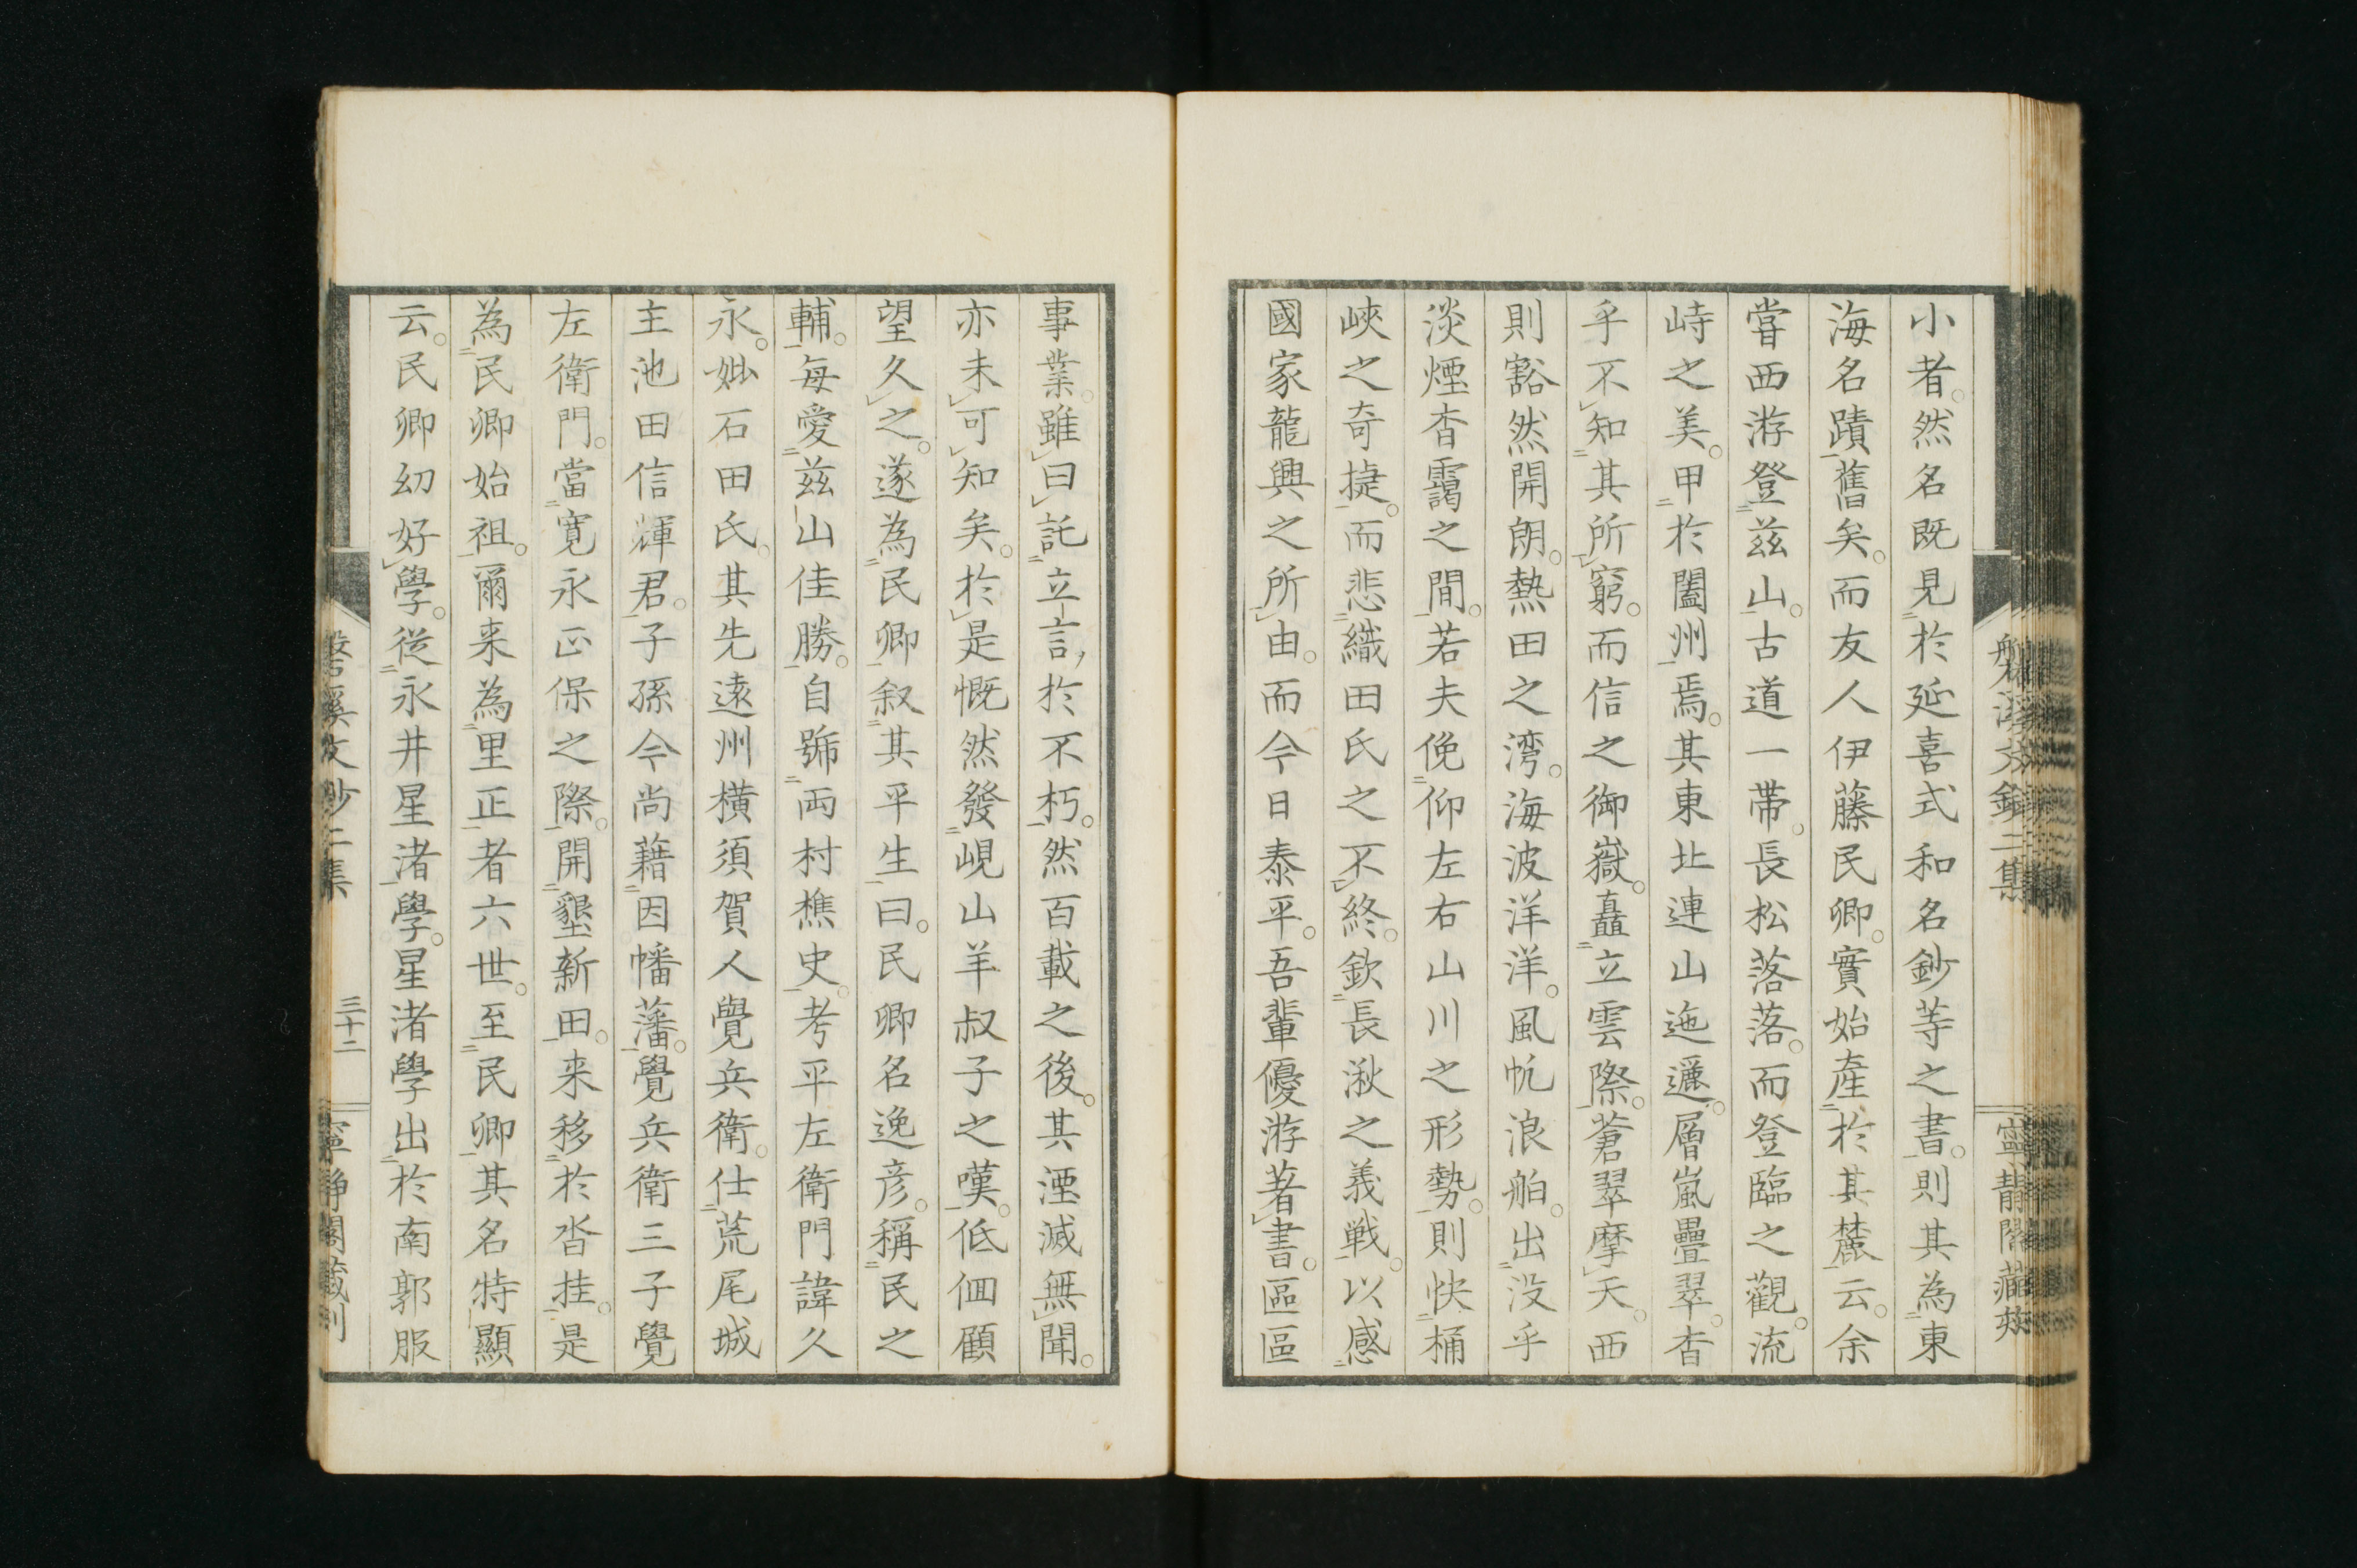 小者。然名既見於延喜式和名鈔等之書。則其為東
海名蹟舊矣。而友人伊藤民卿。實始產於其麓云。余
嘗西游登茲山。古道一帶。長松落落。而登臨之觀。流
峙之美。甲於闔州焉。其東北連山迤邐。層嵐疊翠。杳
乎不知其所窮。而信之御嶽。矗立雲際。蒼翠摩天。西
則豁然開朗。熱田之湾。海波洋洋。風帆浪舶。出没乎
淡煙杳靄之間。若夫俛仰左右山川之形勢。則快桶
峽之奇捷。而悲織田氏之不終。欽長湫之義戦。以感
國家龍興之所由。而今日泰平。吾輩優游著書。區區
寧靜閣藏
事業。雖曰託立言於不朽。然百載之後。其湮滅無聞。
亦未可知矣。於是慨然發峴山羊叔子之嘆。低佪顧
望久之。遂為民卿叙其平生曰。民卿名逸彦。稱民之
輔。每愛茲山佳勝。自號両村樵史。考平左衛門諱久
永。妣石田氏。其先遠州橫須賀人覺兵衛。仕荒尾城
主池田信輝君。子孫今尚藉因幡藩。覺兵衛三子覺
左衛門。當寛永正保之際。開墾新田。来移於沓挂。是
為民卿始祖。爾来為里正者六世。至民卿其名特顯
云。民卿幼好學。從永井星渚學。星渚學出於南郭服
磐溪文鈔二集 三十二 寧靜閣藏刊